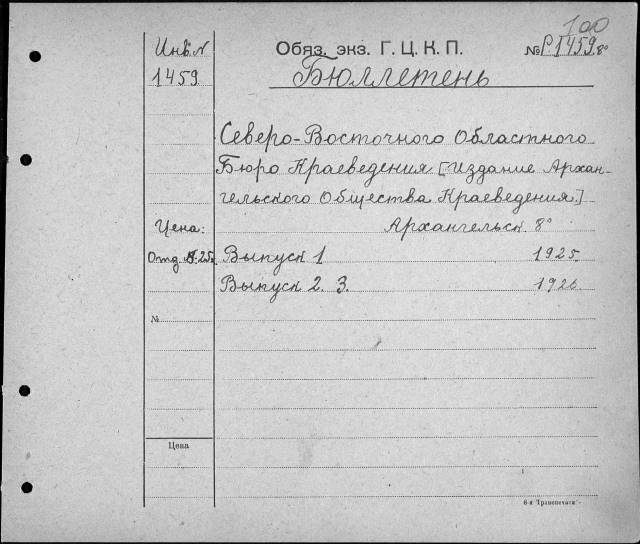 100
Инв. N Обяз. экз. Г. Ц. К. П. № P. 1459 8°
1459 Бюллетень
Северо-Восточного Областного
Бюро Краеведения [Издание Архан-
гельского Общества Краеведения.]
Цена: Архангельск. 8°
Отд. Выпуск 1 1925.
Выпуск 2. 3. 1926.
№
Цена
6-я "Транспечати".